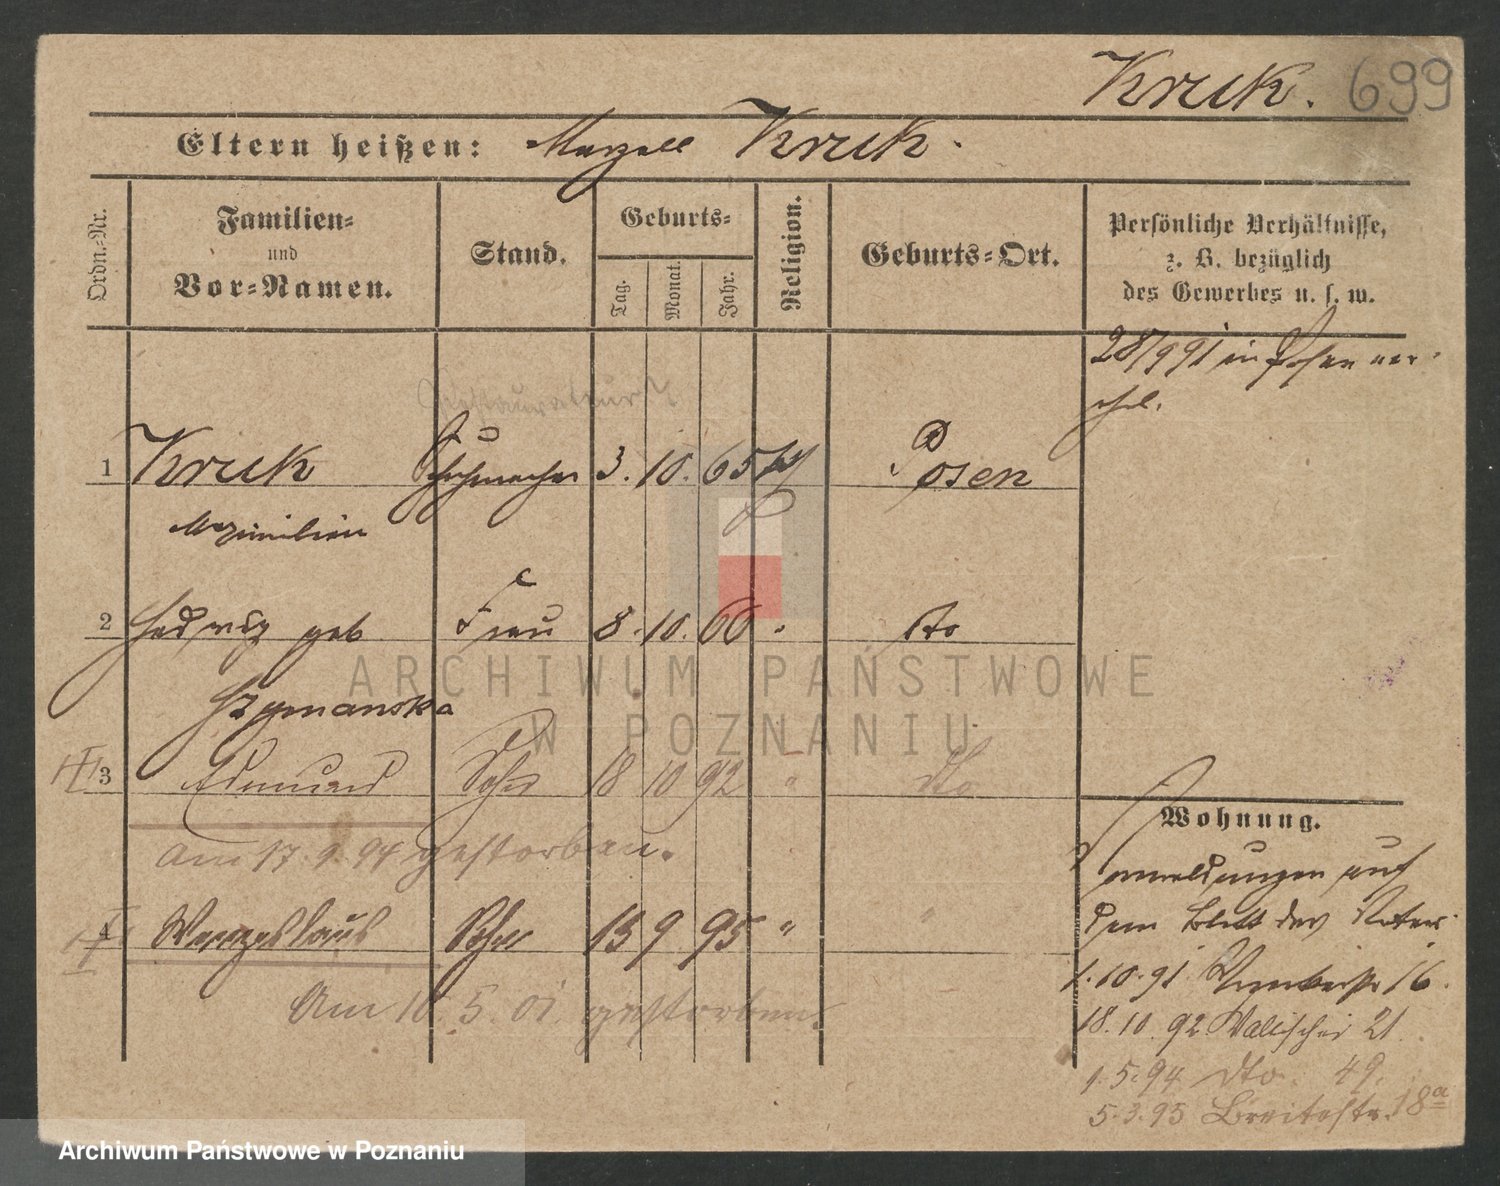 Kruk. 699
Eltern heißen: Marzell Kruk.
Ordn.-Nr.
Familien-
und
Vor-Namen.
Stand.
Geburts-
Tag.
Monat.
Jahr.
Religion.
Geburts-Ort.
Persönliche Verhältnisse,
z. B. bezüglich
des Gewerbes u. s. w.
28/9 91 in Posen ver-
ehel.
Restaurateur
1 Kruk Schuhmacher 3. 10. 65 Posen
Maximilian
2 Hedwig geb Frau 8. 10. 66 " dto
Szymanska
3 Edmund Sohn 18 10 92 " dto
Am 17. 9. 94 gestorben.
4 Wenzeslaus Sohn 15 9 95 " "
Am 10. 5. 01 gestorben.
Wohnung.
Anmeldungen auf
dem Blatt des Vaters
1. 10. 91 16.
18. 10. 92 Wallischei 21
1. 5. 94 dto 49.
5. 3. 95 Breitestr. 18a
ARCHIWUM PAŃSTWOWE
W POZNANIU
Archiwum Państwowe w Poznaniu